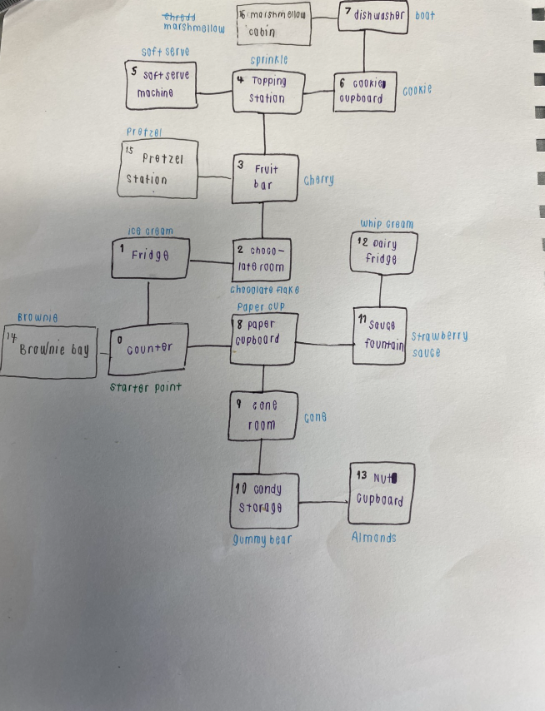 thredd
marshmallow
16 marshmellow
cabin
7 dishwasher
boat
soft serve
5 soft serve
machine
sprinkle
4 Topping
station
6 cookie
cupboard
cookie
Pretzel
15 Pretzel
station
3 Fruit
bar
cherry
ice cream
1 Fridge
2 choco-
late room
chocolate flake
whip cream
12 Dairy
fridge
Brownie
14
Brownie bay
0
counter
starter point
Paper cup
8 paper
cupboard
11 sauce
fountain
strawberry
sauce
9 cone
room
cone
10 candy
storage
gummy bear
13 Nut
cupboard
Almonds